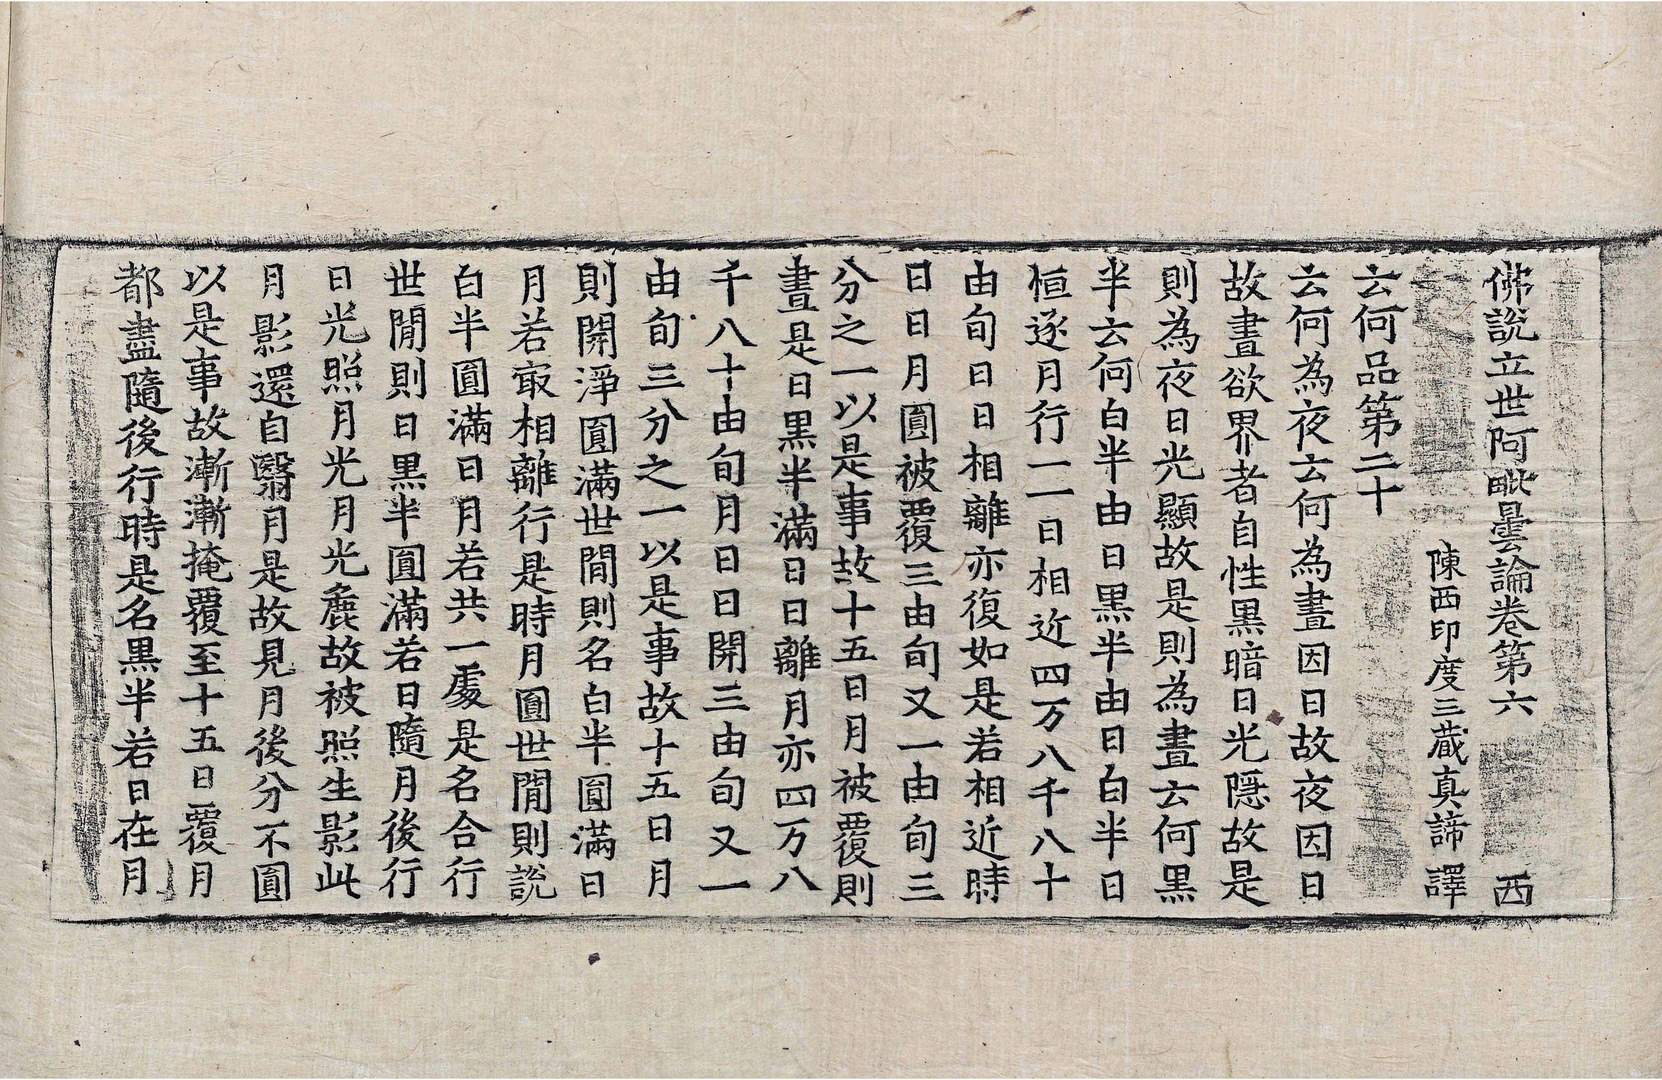 佛說立世阿毗曇論卷第六 西
陳西印度三藏真諦譯
云何品第二十
云何為夜云何為晝因日故夜因日
故晝欲界者自性黑暗日光隱故是
則為夜日光顯故是則為晝云何黑
半云何白半由日黑半由日白半日
恒逐月行一一日相近四万八千八十
由旬日日相離亦復如是若相近時
日日月圓被覆三由旬又一由旬三
分之一以是事故十五日月被覆則
晝是日黑半滿日日離月亦四万八
千八十由旬月日日開三由旬又一
由旬三分之一以是事故十五日月
則開淨圓滿世間則名白半圓滿日
月若㝡相離行是時月圓世間則說
白半圓滿日月若共一處是名合行
世間則日黑半圓滿若日隨月後行
日光照月光月光麁故被照生影此
月影還自翳月是故見月後分不圓
以是事故漸漸掩覆至十五日覆月
都盡隨後行時是名黑半若日在月